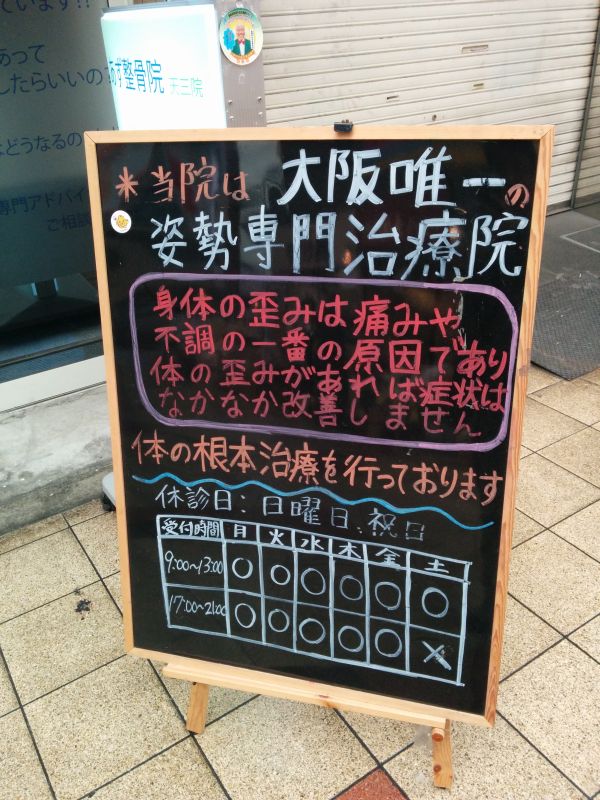 ています!!
あって
したらいいの
はどうなるの
専門アドバイ
ご相談
あず整骨院 天三院
*当院は 大阪唯一の
姿勢専門治療院
身体の歪みは痛みや
不調の一番の原因であり
体の歪みがあれば症状は
なかなか改善しません
体の根本治療を行っております
休診日:日曜日、祝日
受付時間 月 火 水 木 金 土
9:00~13:00 ○ ○ ○ ○ ○ ○
17:00~21:00 ○ ○ ○ ○ ○ ×